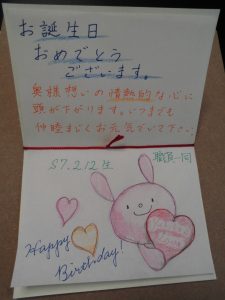 お誕生日
おめでとう
ございます。
奥様想いの情熱的な心に
頭が下がります。いつまでも
仲睦まじくお元気でいて下さい
S7.2.12生
職員一同
Happy
Birthday!
Love